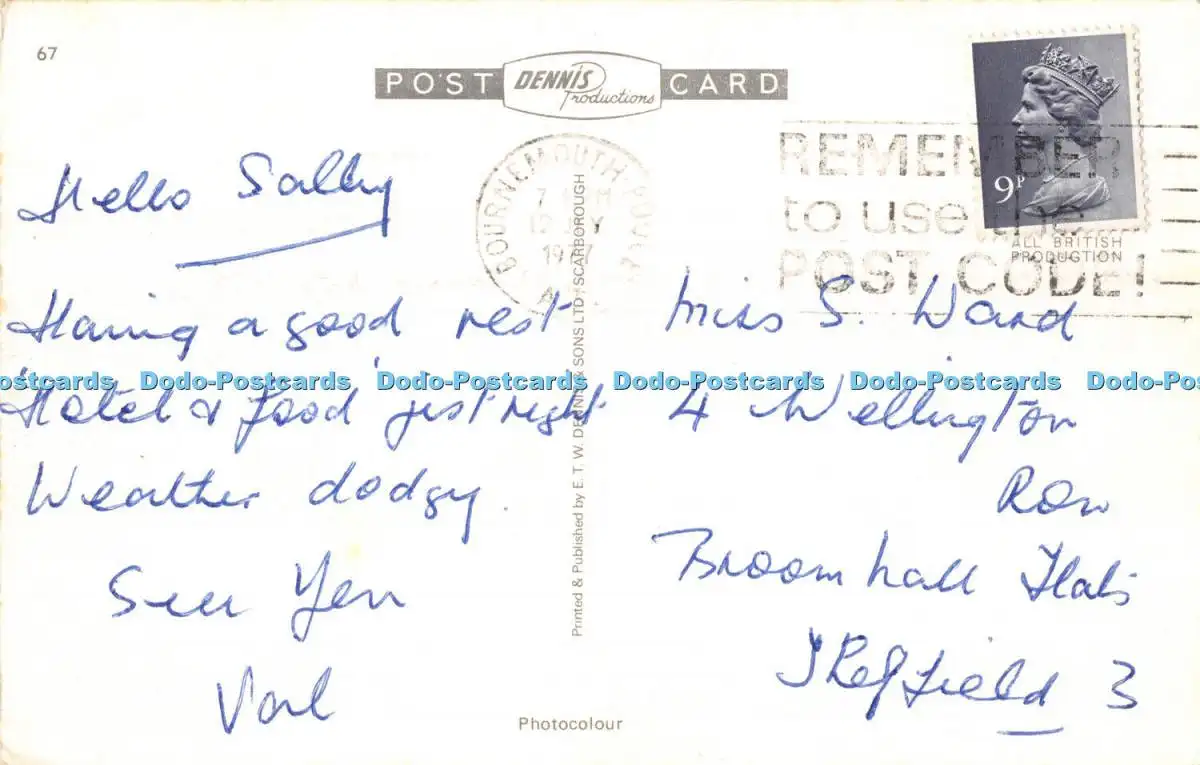 67
POST DENNIS Productions CARD
9P
BOURNEMOUTH POOLE
1977
REMEMBER
to use the
POST CODE!
ALL BRITISH
PRODUCTION
Hello Sally
Having a good rest
Hotel & food just right
Weather dodgy.
See Yer
Val
Printed & Published by E. T. W. DENNIS & SONS LTD SCARBOROUGH
Miss S. Ward
4 Wellington
Row
Broomhall Flats
Sheffield 3
Photocolour
Postcards Dodo-Postcards Dodo-Postcards Dodo-Postcards Dodo-Postcards Dodo-Post